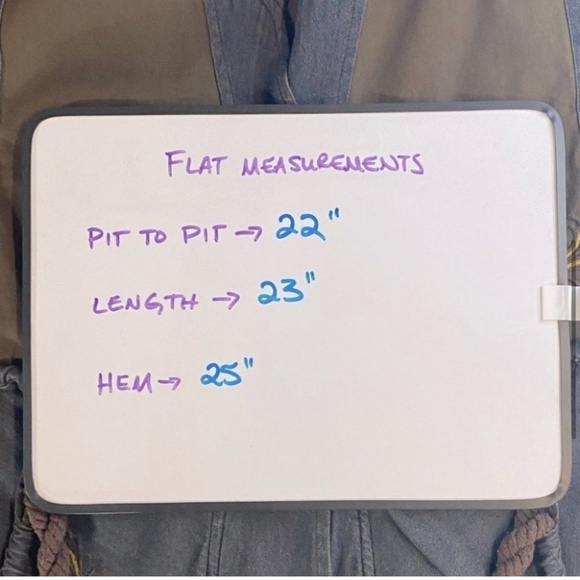 FLAT MEASUREMENTS
PIT TO PIT → 22"
LENGTH → 23"
HEM → 25"